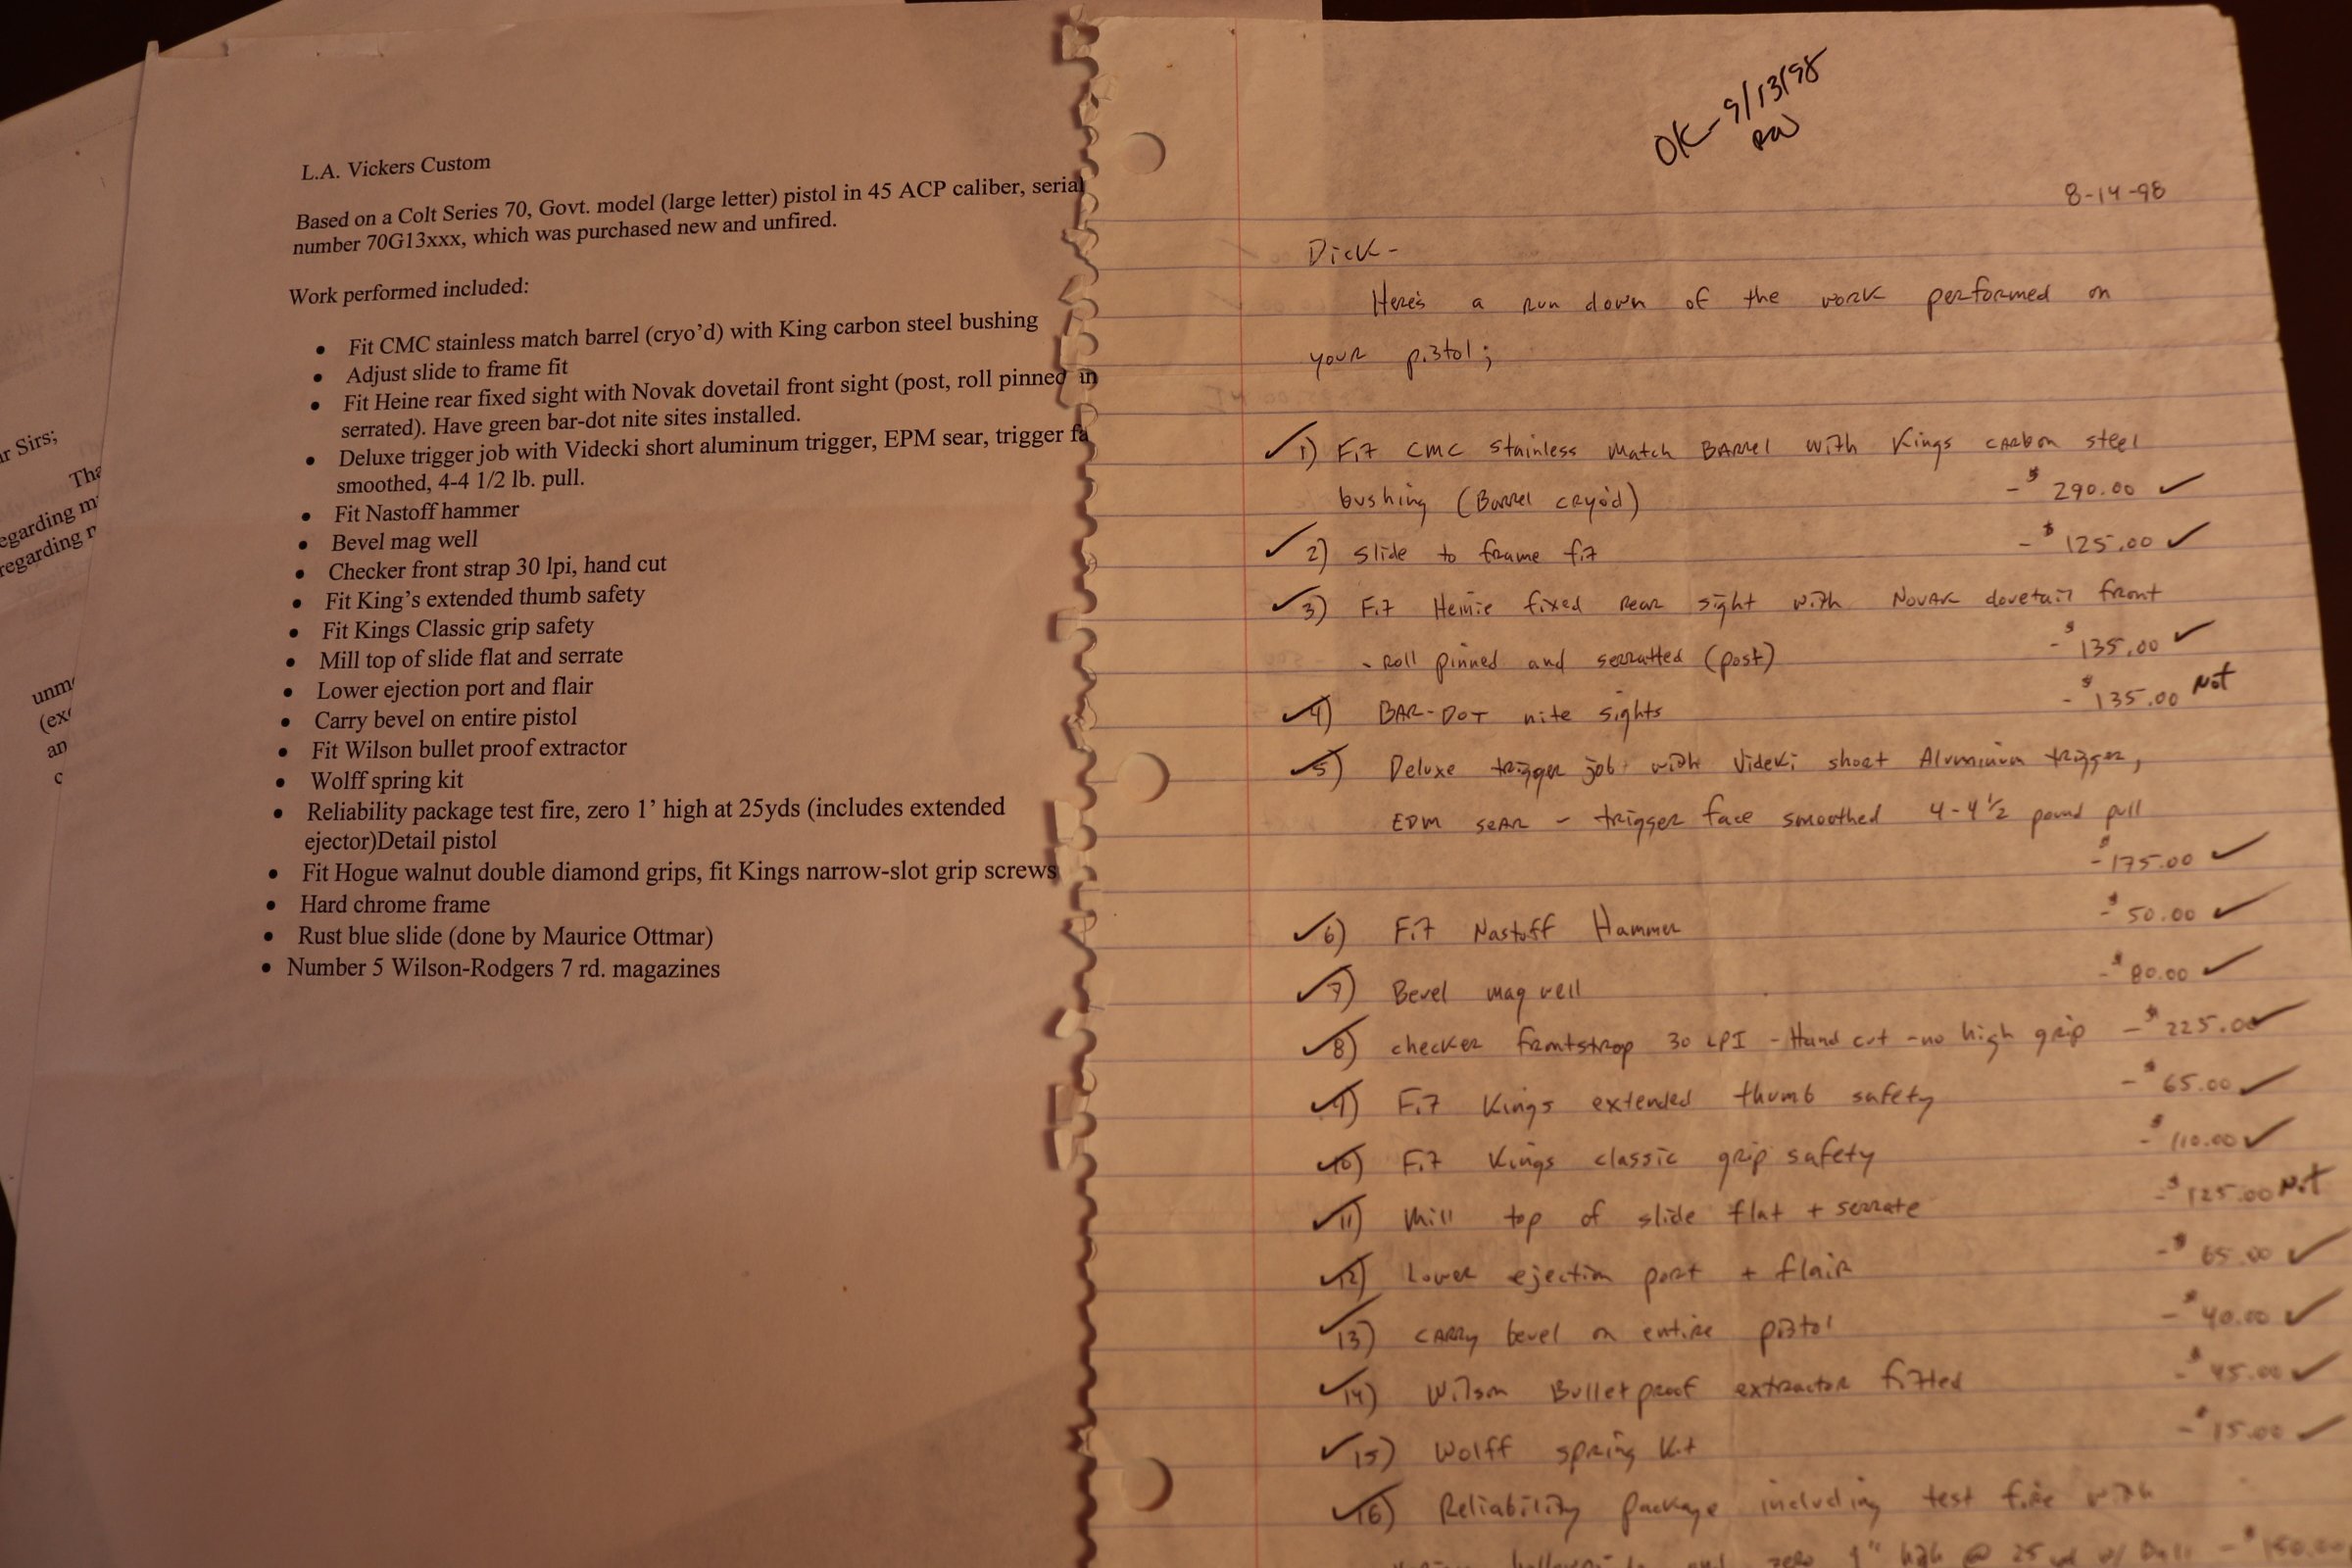 L.A. Vickers Custom
Based on a Colt Series 70, Govt. model (large letter) pistol in 45 ACP caliber, serial
number 70G13xxx, which was purchased new and unfired.
Work performed included:
• Fit CMC stainless match barrel (cryo’d) with King carbon steel bushing
• Adjust slide to frame fit
• Fit Heine rear fixed sight with Novak dovetail front sight (post, roll pinned in
serrated). Have green bar-dot nite sites installed.
• Deluxe trigger job with Videcki short aluminum trigger, EPM sear, trigger fa
smoothed, 4-4 1/2 lb. pull.
• Fit Nastoff hammer
• Bevel mag well
• Checker front strap 30 lpi, hand cut
• Fit King’s extended thumb safety
• Fit Kings Classic grip safety
• Mill top of slide flat and serrate
• Lower ejection port and flair
• Carry bevel on entire pistol
• Fit Wilson bullet proof extractor
• Wolff spring kit
• Reliability package test fire, zero 1’ high at 25yds (includes extended
ejector)Detail pistol
• Fit Hogue walnut double diamond grips, fit Kings narrow-slot grip screws
• Hard chrome frame
• Rust blue slide (done by Maurice Ottmar)
• Number 5 Wilson-Rodgers 7 rd. magazines
r Sirs;
Tha
egarding m
regarding r
unm
(ex
an
c
OK - 9/13/98
RW
8-14-98
Dick-
Here's a run down of the work performed on
your pistol;
✓1) Fit CMC stainless match BARREL with Kings carbon steel
bushing (Barrel cryo'd) - $290.00 ✓
✓2) slide to frame fit - $125.00 ✓
✓3) Fit Heinie fixed rear sight with NOVAK dovetail front
- roll pinned and serratted (post) - $135.00 ✓
✓4) BAR-DOT nite sights - $135.00 Not
✓5) Deluxe trigger job with Videki short Aluminum trigger,
EDM sear - trigger face smoothed 4-4 1/2 pound pull
- $175.00 ✓
✓6) Fit Nastoff Hammer - $50.00 ✓
✓7) Bevel mag well - $80.00 ✓
✓8) checker frontstrap 30 LPI - Hand cut - no high grip - $225.00 ✓
✓9) Fit Kings extended thumb safety - $65.00 ✓
✓10) Fit Kings classic grip safety - $110.00 ✓
✓11) Mill top of slide flat + serrate - $125.00 Not
✓12) Lower ejection port + flair - $65.00 ✓
✓13) CARRY bevel on entire pistol - $40.00 ✓
✓14) Wilson Bulletproof extractor fitted - $45.00 ✓
✓15) Wolff spring kit - $15.00 ✓
✓16) Reliability package including test fire with
zero 1" high @ 25 yd w/ Ball - $150.00